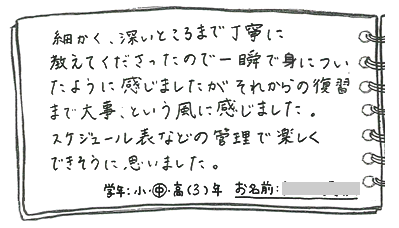 細かく、深いところまで丁寧に
教えてくださったので一瞬で身につい
たように感じましたがそれからの復習
まで大事、という風に感じました。
スケジュール表などの管理で楽しく
できそうに思いました。
学年:小・㊥・高(3)年 お名前: